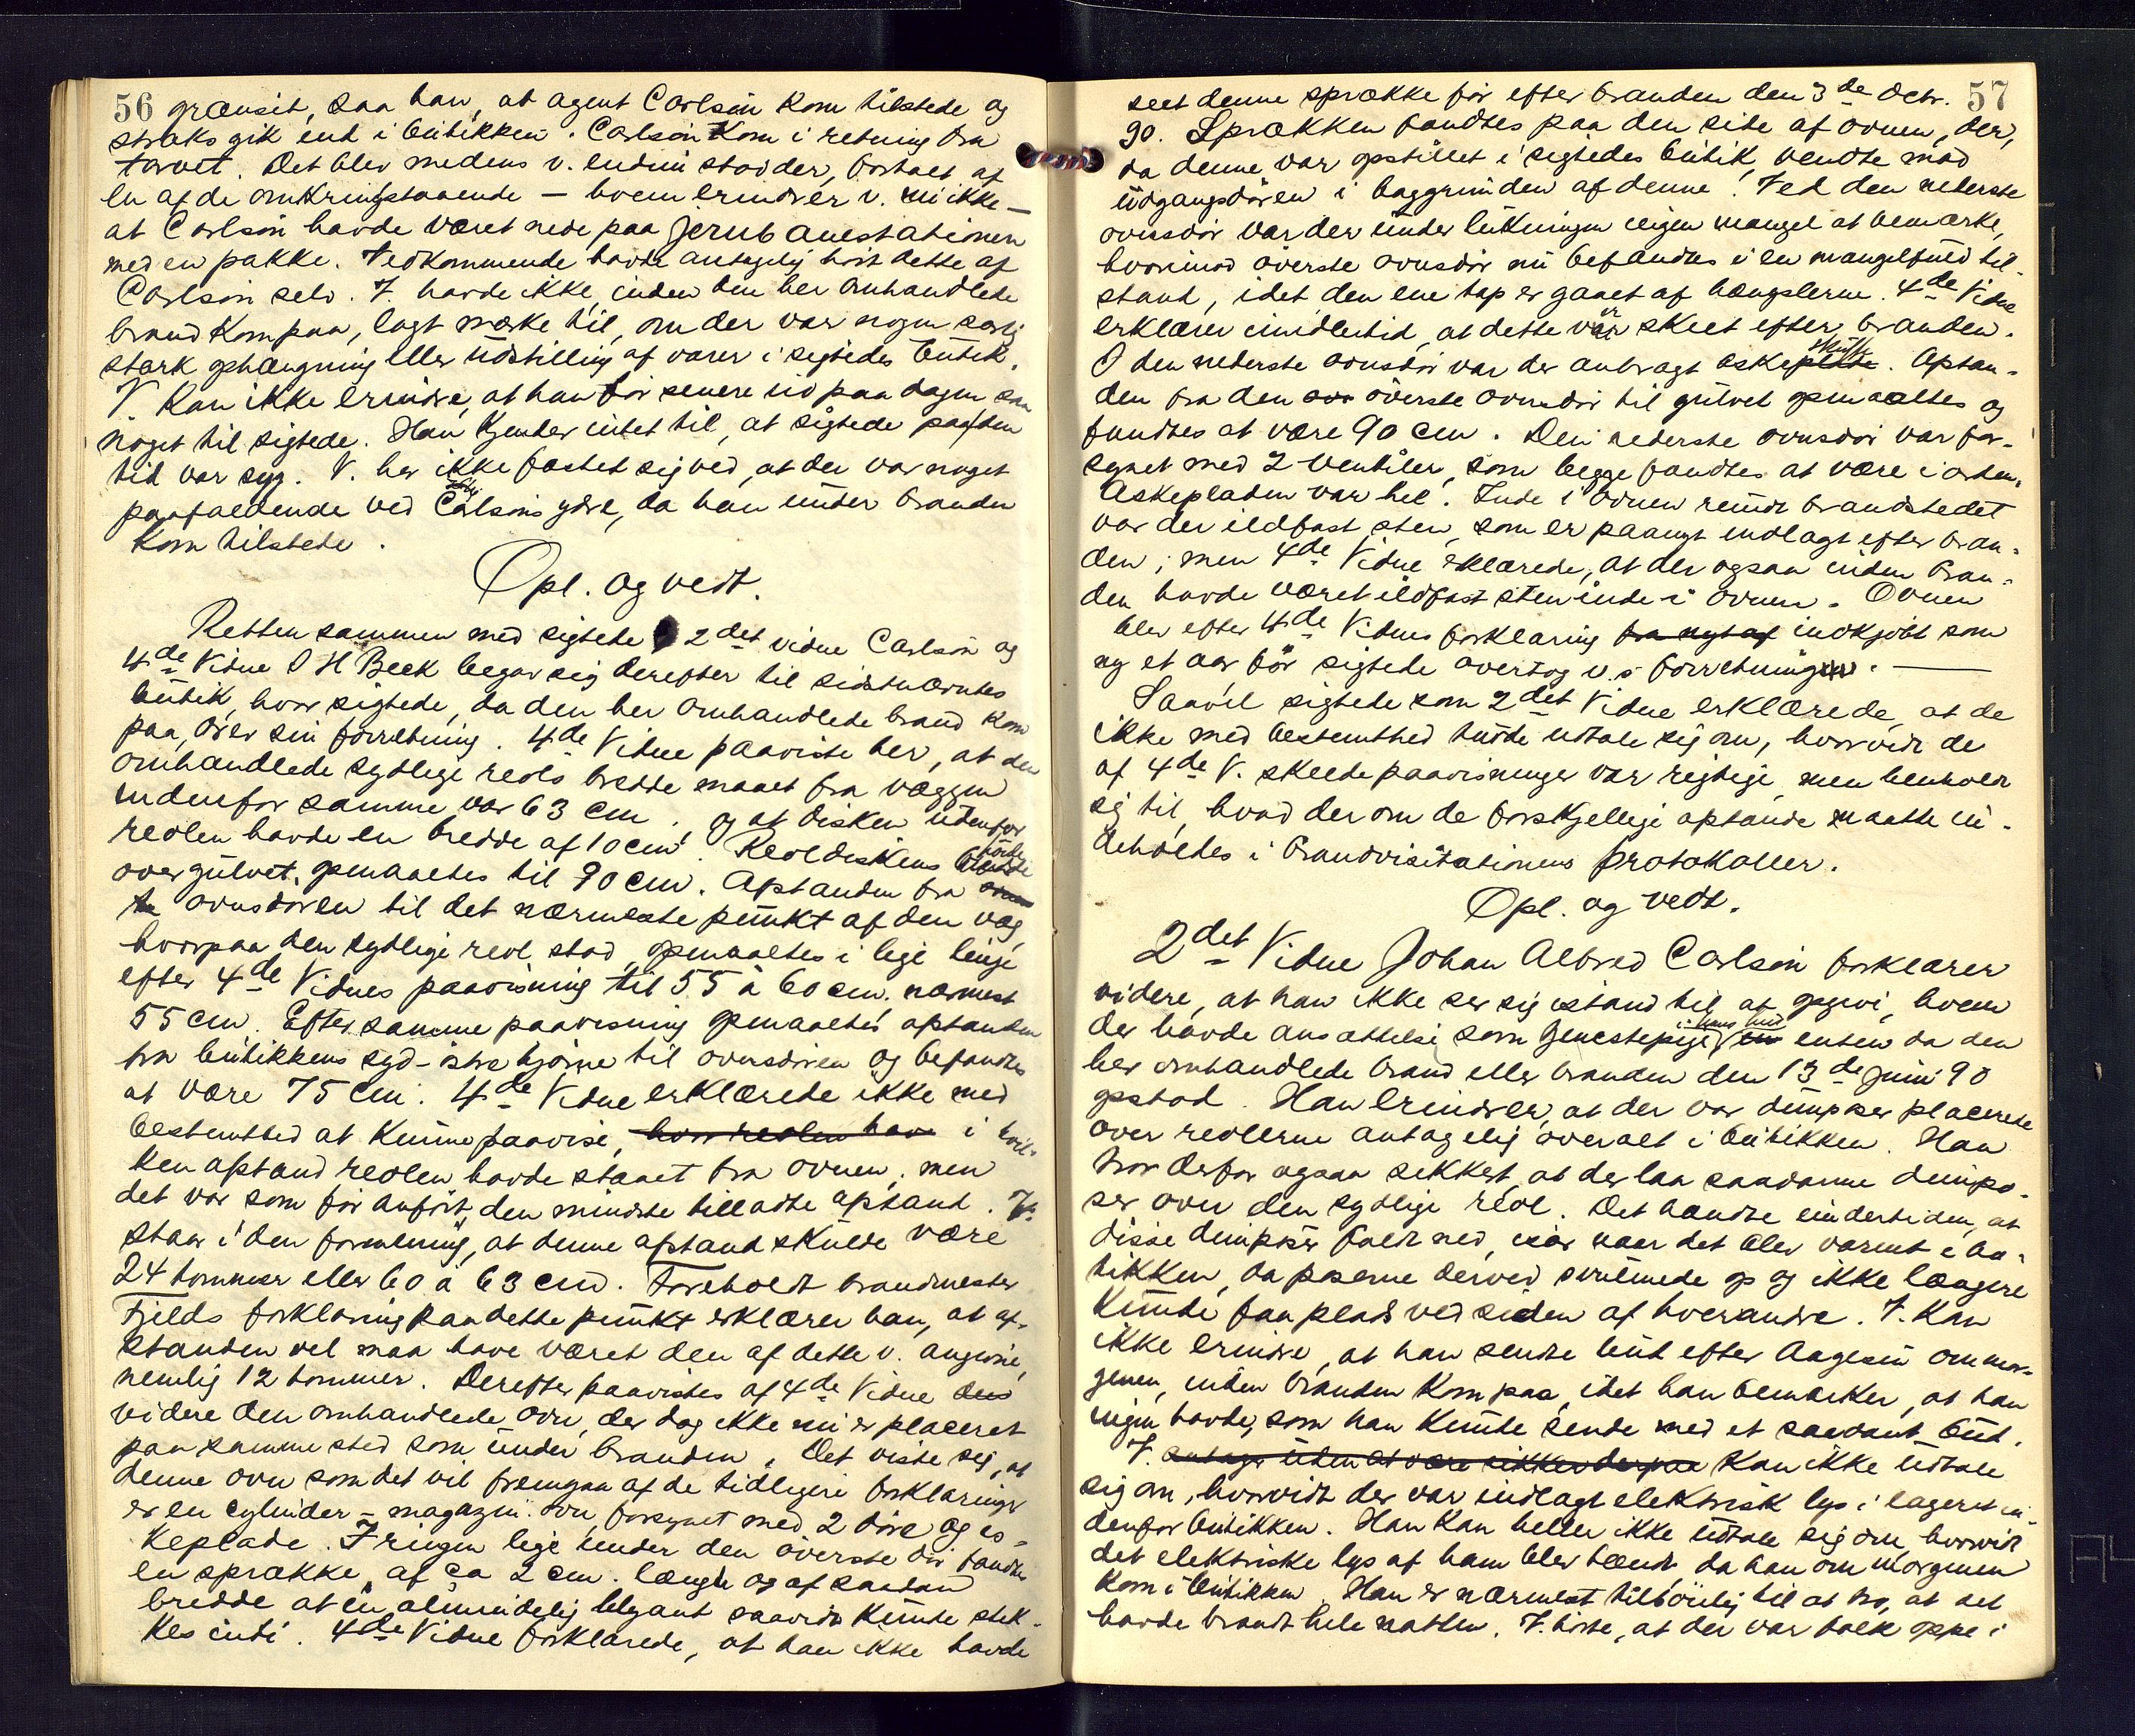 56
grænsit, saa han, at agent Carlson kom tilstede og
straks gik ind i butikken. Carlson kom i retning fra
torvet. Det blev medens v. endnu stod der, fortalt af
en af de omkringstaaende – hvem erindrer v. nu ikke –
at Carlson havde været nede paa Jernbanestationen
med en pakke. Vedkommende havde antagelig hørt dette af
Carlson selv. V. havde ikke, inden den her omhandlede
brand kom paa, lagt mærke til, om der var nogen særlig
stærk ophængning eller udstilling af varer i sigtedes butik.
V. kan ikke erindre, at han før senere ud paa dagen saa
noget til sigtede. Han kjender intet til, at sigtede paa den
tid var syg. V. har ikke fæstet sig ved, at der var noget
paafaldende ved Carlsons ydre, da han under branden
kom tilstede.
Opl. og vedt.
Retten sammen med sigtede 2det vidne Carlson og
4de Vidne O H Beck begav sig derefter til sidstnævntes
butik, hvor sigtede, da den her omhandlede brand kom
paa, drev sin forretning. 4de Vidne paaviste her, at den
omhandlede sydlige reols bredde maalt fra væggen
indenfor samme var 63 cm. og at disken udenfor
reolen havde en bredde af 10 cm. Reoldiskens høide
over gulvet opmaaltes til 90 cm. Afstanden fra
ovnsdøren til det nærmeste punkt af den væg
hvorpaa den sydlige reol stod, opmaaltes i lige linje
efter 4de Vidnes paavisning til 55 à 60 cm. nærmest
55 cm. Efter samme paavisning opmaaltes afstanden
fra butikkens syd-østre hjørne til ovnsdøren og befandtes
at være 75 cm. 4de Vidne erklærede ikke med
bestemthed at kunne paavise, hvor reolen hav i hvil-
ken afstand reolen havde staaet fra ovnen, men
det var som før anført, den mindste tilladte afstand. V.
staar i den formening, at denne afstand skulde være
24 tommer eller 60 à 63 cm. Foreholdt brandmester
Fjelds forklaring paa dette punkt erklærer han, at af-
standen vel maa have været den af dette v. angivne,
nemlig 12 tommer. Derefter paavistes af 4de Vidne
videre den omhandlede ovn, der dog ikke nu er placeret
paa samme sted som under branden. Det viste sig, at
denne ovn som det vil fremgaa af de tidligere forklaringer
er en cylinder-magazin-ovn, forsynet med 2 døre og as-
keplade. I ringen lige under den øverste dør fandtes
en sprække af ca 2 cm. længde og af saadan
bredde at en almindelig blyant saavidt kunde stik-
kes inti. 4de Vidne forklarede, at han ikke havde
57
seet denne sprække før efter branden den 3de Octr.
90. Sprækken fandtes paa den side af ovnen, der,
da denne var opstillet i sigtedes butik, vendte mod
udgangsdøren i baggrunden af denne. Ved den nederste
ovnsdør var der under lukningen ingen mangel at bemærke,
hvorimod øverste ovnsdør nu befandtes i en mangelfuld til-
stand, idet den ene tap er gaaet af hængslerne. 4de Vidne
erklærer imidlertid, at dette er skeet efter branden.
I den nederste ovnsdør var der anbragt askeplade skuffe. Afstan-
den fra den øverste ovnsdør til gulvet opmaaltes og
fandtes at være 90 cm. Den nederste ovnsdør var for-
synet med 2 ventiler, som begge fandtes at være i orden.
Askepladen var hel. Inde i ovnen rundt brandstedet
var der ildfast sten, som er paanyt indlagt efter bran-
den; men 4de Vidne erklærede, at der ogsaa inden bran-
den havde været ildfast sten inde i ovnen. Ovnen
blev efter 4de Vidnes forklaring fra nyt af indkjøbt som
ny et aar før sigtede overtog v.s forretning.
Saavel sigtede som 2det Vidne erklærede, at de
ikke med bestemthed turde udtale sig om, hvorvidt de
af 4de V. skeede paavisninger var rigtige, men henholdt
sig til, hvad der om de forskjellige afstande maatte in-
deholdes i brandvisitationens protokoller.
Opl. og vedt.
2det Vidne Johan Alfred Carlson forklarer
videre, at han ikke ser sig istand til at opgive, hvem
der havde ansættelse som tjenestepige i hans hus enten da den
her omhandlede brand eller branden den 13de juni 90
opstod. Han erindrer, at der var dunposer placerede
over reolerne antagelig overalt i butikken. Han
tror derfor ogsaa sikkert, at der laa saadanne dunpo-
ser over den sydlige reol. Det hændte undertiden, at
disse dunposer faldt ned, især naar det blev varmt i bu-
tikken, da poserne derved svulmede op og ikke længere
kunde faa plads ved siden af hverandre. V. kan
ikke erindre, at han sendte bud efter Aagesen om mor-
genen, inden branden kom paa, idet han bemærker, at han
ingen havde, som han kunde sende med et saadant bud.
V. antager uden at være sikker derpaa kan ikke udtale
sig om, hvorvidt der var indlagt elektrisk lys i lageret in-
denfor butikken. Han kan heller ikke udtale sig om, hvorvidt
det elektriske lys af ham blev tændt, da han om morgenen
kom i butikken. Han er nærmest tilbøielig til at tro, at det
havde brændt hele natten. V. hørte, at der var folk oppe i